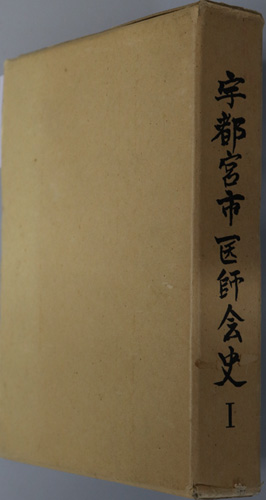 宇都宮市医師会史 I